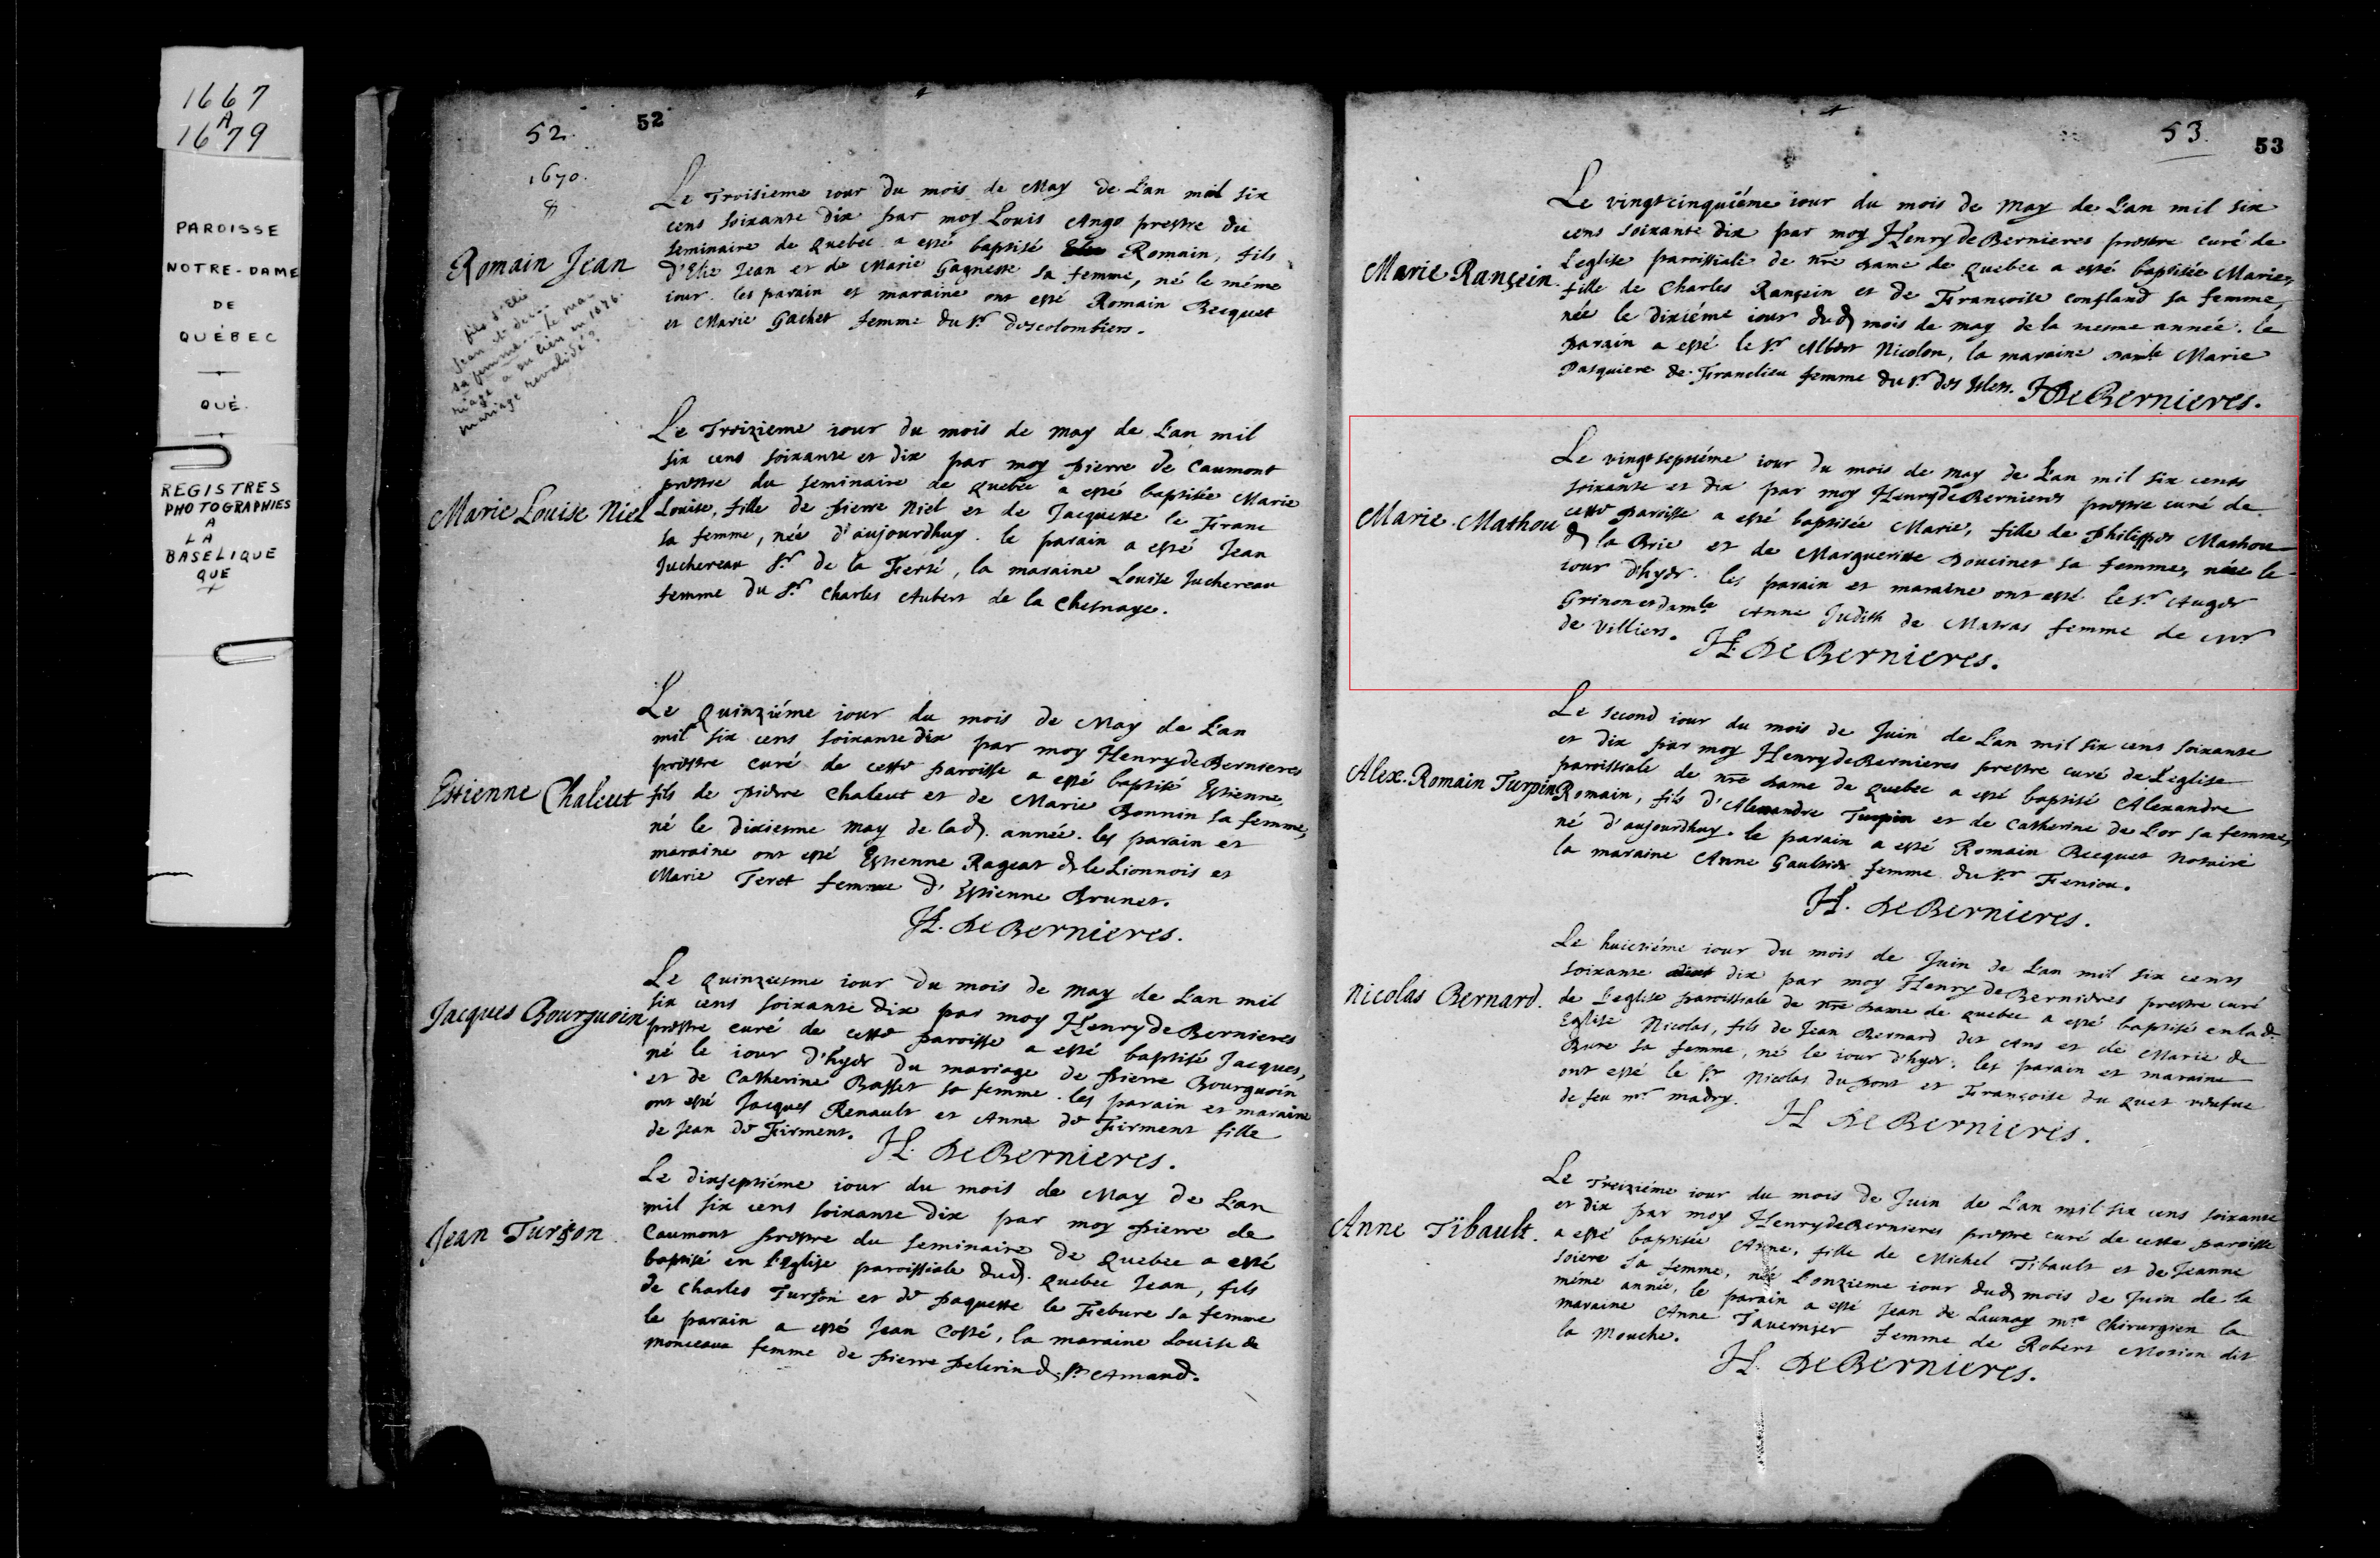 1667
A
1679
PAROISSE
NOTRE-DAME
DE
QUÉBEC
QUÉ.
REGISTRES
PHOTOGRAPHIES
A
LA
BASELIQUE
QUE
+
52.
52
1670.
Le Troisieme iour du mois de May de L'an mil six
cens soixante dix par moy Louis Ango prestre du
seminaire de Quebec a esté baptisé Romain, fils
Romain Jean
d'Elie Jean et de Marie Gagnesse sa femme, né le méme
iour. les parain et maraine ont esté Romain Becquet
et Marie Gachet femme du Sr. descolombiers.
fils d'Elie
Jean et de
sa femme... le ma-
riage a eu lieu en 1676.
mariage revalidé?
Le Treizieme iour du mois de may de L'an mil
six cens soixante et dix par moy pierre de Caumont
prestre du seminaire de quebec a esté baptisée Marie
Marie Louise Niel
Louise, fille de pierre Niel et de Jacquette le Franc
sa femme, née d'aujourdhuy. le parain a esté Jean
Juchereau Sr. de la Ferté, la maraine Louise Juchereau
femme du Sr. Charles Aubert de la Chesnaye.
Le quinziéme iour du mois de May de L'an
mil six cens soixante dix par moy Henry de Bernieres
prestre curé de cette paroisse a esté baptisé Estienne,
Estienne Chaleut
fils de pierre Chaleut et de Marie Bonnin sa femme,
né le dixiesme may de lad. année. les parain et
maraine ont esté Estienne Rageat d. le Lionnois et
Marie Teret femme d'Estienne Brunet.
H. de Bernieres.
Le quinzeisme iour du mois de may de L'an mil
six cens soixante dix par moy Henry de Bernieres
Jacques Bourguoin
prestre curé de cette paroisse a esté baptisé Jacques,
né le iour d'hyer du mariage de pierre Bourguoin
et de Catherine Basset sa femme. les parain et maraine
ont esté Jacques Renault et Anne de Firment fille
de Jean de Firment. H. de Bernieres.
Le dixseptiéme iour du mois de May de L'an
mil six cens soixante dix par moy pierre de
Jean Turjon.
Caumont prestre du seminaire de Quebec a esté
baptisé en l'Eglise paroissiale dud. Quebec Jean, fils
de Charles Turjon et de paquette le Febure sa femme
le parain a esté Jean Costé, la maraine Louise de
monceaux femme de pierre pelerin d. St Amand.
53.
53
Le vingtcinquiéme iour du mois de may de L'an mil six
cens soixante dix par moy Henry de Bernieres prestre curé de
Marie Rançein.
L'eglise paroissiale de nre dame de quebec a esté baptisée Marie,
fille de Charles Rançein et de Françoise confland sa femme,
née le dixiéme iour dud. mois de may de la mesme année. le
parain a esté le Sr Albert Nicolon, la maraine damle Marie
Pasquiere de Franclieu femme du Sr. des Islets. H de Bernieres.
Le vingtseptiéme iour du mois de may de L'an mil six cens
soixante et dix par moy Henry de Bernieres prestre curé de
Marie Mathou
cette paroisse a esté baptisée Marie, fille de Philippes Mathou
d. la Brie et de Marguerite Doucinet sa femme, née le
iour d'hyer. les parain et maraine ont esté le Sr. Auger
Grinon et damle Anne Judith de Matras femme de Mr
de Villiers. H. de Bernieres.
Le second iour du mois de Juin de L'an mil six cens soixante
et dix par moy Henry de Bernieres prestre curé de L'eglise
paroissiale de nre dame de quebec a esté baptisé Alexandre
Alex. Romain Turpin
Romain, fils d'Alexandre Turpin et de Catherine de Lor sa femme,
né d'aujourdhuy. le parain a esté Romain Becquet notaire
la maraine Anne Gaultier femme du Sr Feniou.
H. de Bernieres.
Le huictiéme iour du mois de Juin de L'an mil six cens
soixante dix par moy Henry de Bernieres prestre curé
Nicolas Bernard.
de L'eglise paroissiale de nre dame de quebec a esté baptisé en lad.
Eglise Nicolas, fils de Jean Bernard dit Ans et de Marie de
Bure sa femme, né le iour d'hyer. les parain et maraine
ont esté le Sr Nicolas du pont et Françoise du quet veufue
de feu mr madry.
H de Bernieres.
Le Treiziéme iour du mois de Juin de L'an mil six cens soixante
et dix par moy Henry de Bernieres prestre curé de cette paroisse
Anne Tibault.
a esté baptisée Anne, fille de Michel Tibault et de Jeanne
soiere sa femme, née L'onzieme iour dud. mois de Juin de la
méme année, le parain a esté Jean de Launay mre chirurgien la
maraine Anne Tavernier femme de Robert Motion dit
la mouche.
H. de Bernieres.